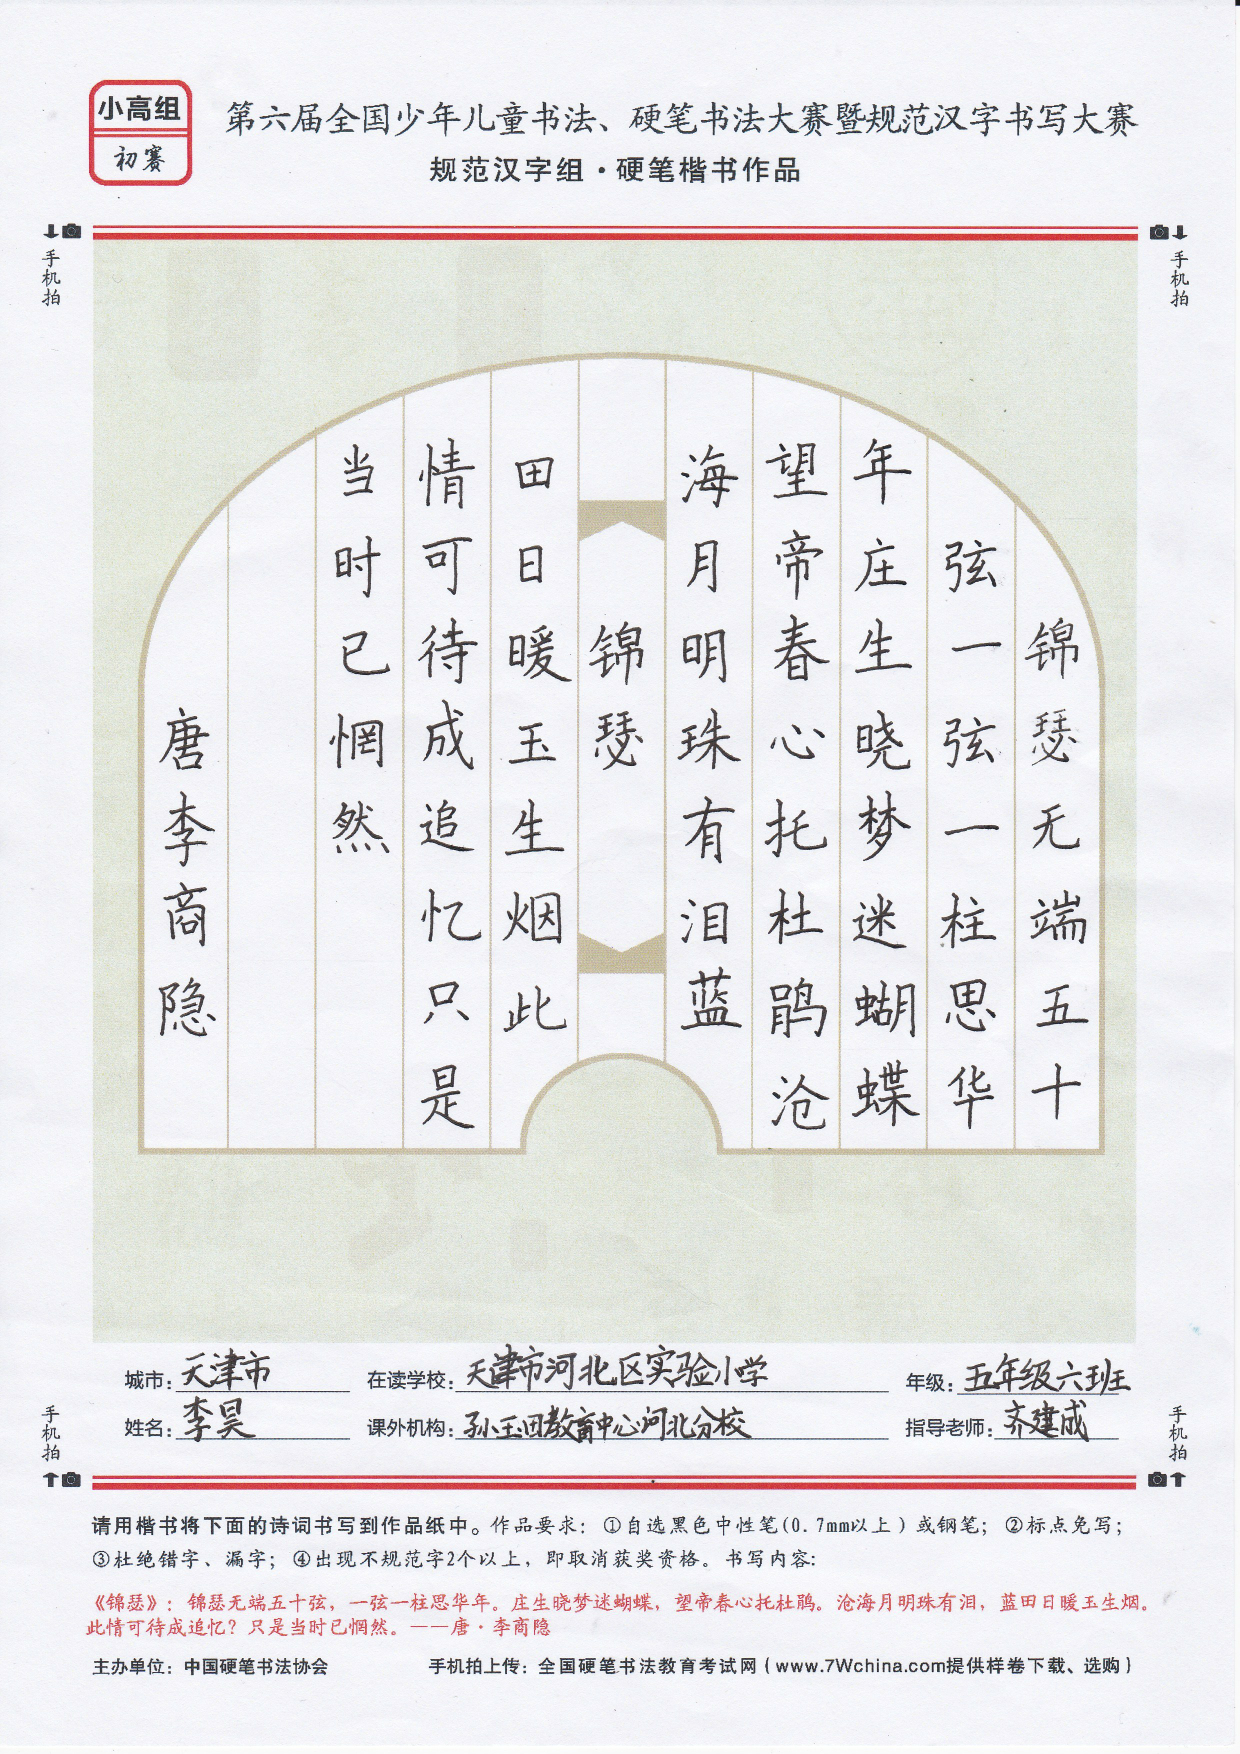 小高组
初赛
第六届全国少年儿童书法、硬笔书法大赛暨规范汉字书写大赛
规范汉字组·硬笔楷书作品
手机拍
手机拍
锦瑟无端五十
弦一弦一柱思华
年庄生晓梦迷蝴蝶
望帝春心托杜鹃沧
海月明珠有泪蓝
锦瑟
田日暖玉生烟此
情可待成追忆只是
当时已惘然
唐李商隐
城市:天津市 在读学校:天津市河北区实验小学 年级:五年级六班
姓名:李昊 课外机构:孙玉田教育中心河北分校 指导老师:齐建成
手机拍
手机拍
请用楷书将下面的诗词书写到作品纸中。作品要求：①自选黑色中性笔(0.7mm以上)或钢笔；②标点免写；
③杜绝错字、漏字；④出现不规范字2个以上，即取消获奖资格。书写内容:
《锦瑟》：锦瑟无端五十弦，一弦一柱思华年。庄生晓梦迷蝴蝶，望帝春心托杜鹃。沧海月明珠有泪，蓝田日暖玉生烟。
此情可待成追忆？只是当时已惘然。——唐·李商隐
主办单位：中国硬笔书法协会 手机拍上传：全国硬笔书法教育考试网（www.7Wchina.com提供样卷下载、选购）